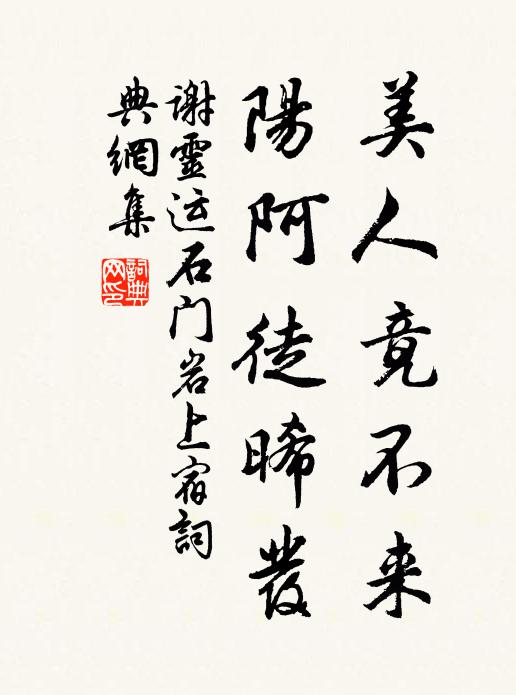 美人竟不来
陽阿徒晞發
谢靈运石门岩上宿詞
典網集
詞典网印